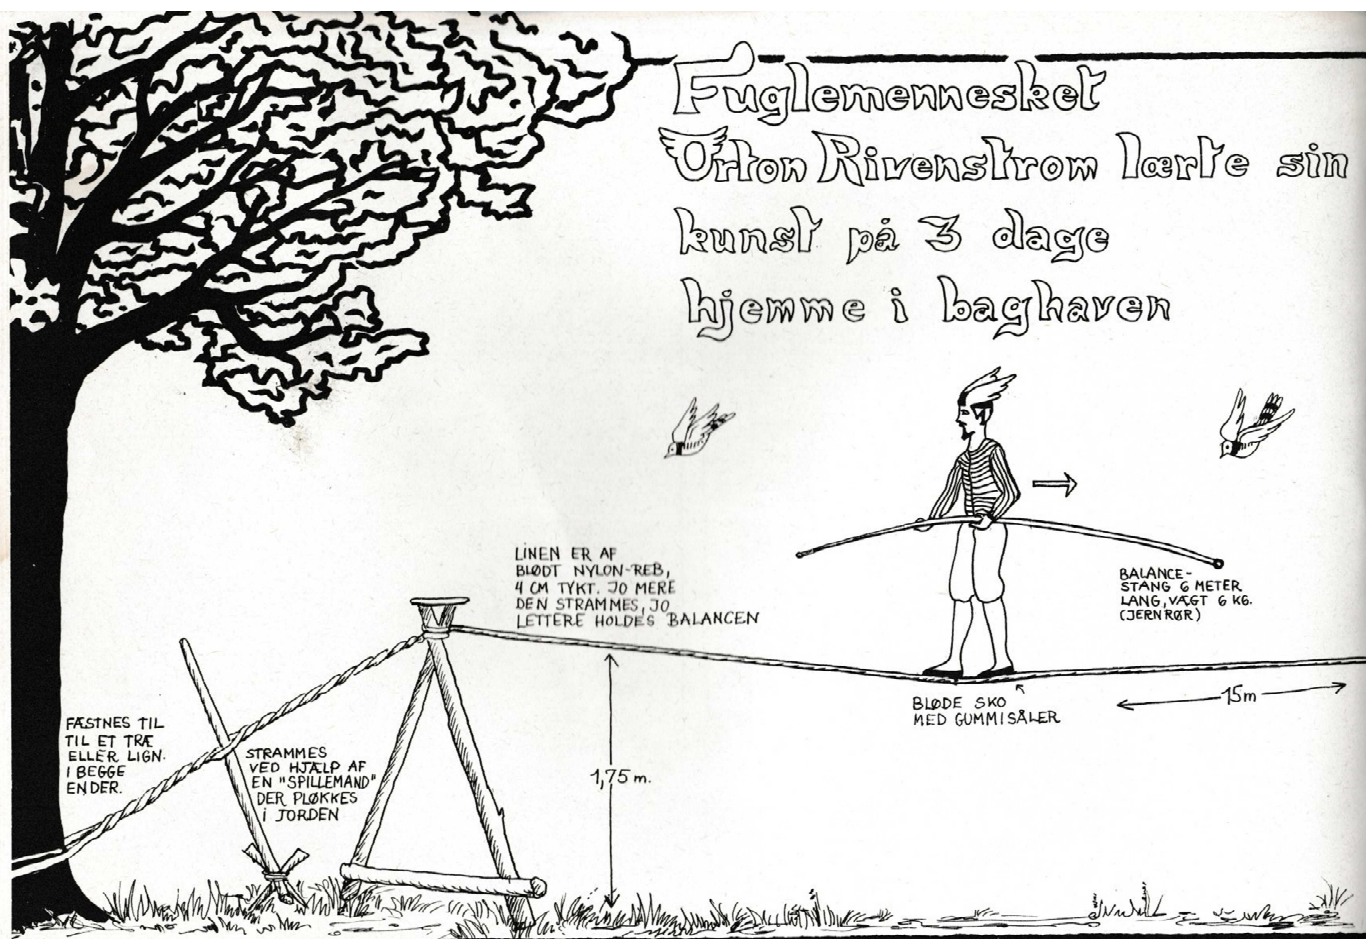 Fuglemennesket
Orton Rivenstrom lærte sin
kunst på 3 dage
hjemme i baghaven
LINEN ER AF
BLØDT NYLON-REB,
4 CM TYKT. JO MERE
DEN STRAMMES, JO
LETTERE HOLDES BALANCEN
BALANCE-
STANG 6 METER
LANG, VÆGT 6 KG.
(JERNRØR)
BLØDE SKO
MED GUMMISÅLER
15m
FÆSTNES TIL
TIL ET TRÆ
ELLER LIGN.
I BEGGE
ENDER.
STRAMMES
VED HJÆLP AF
EN "SPILLEMAND"
DER PLØKKES
I JORDEN
1,75 m.